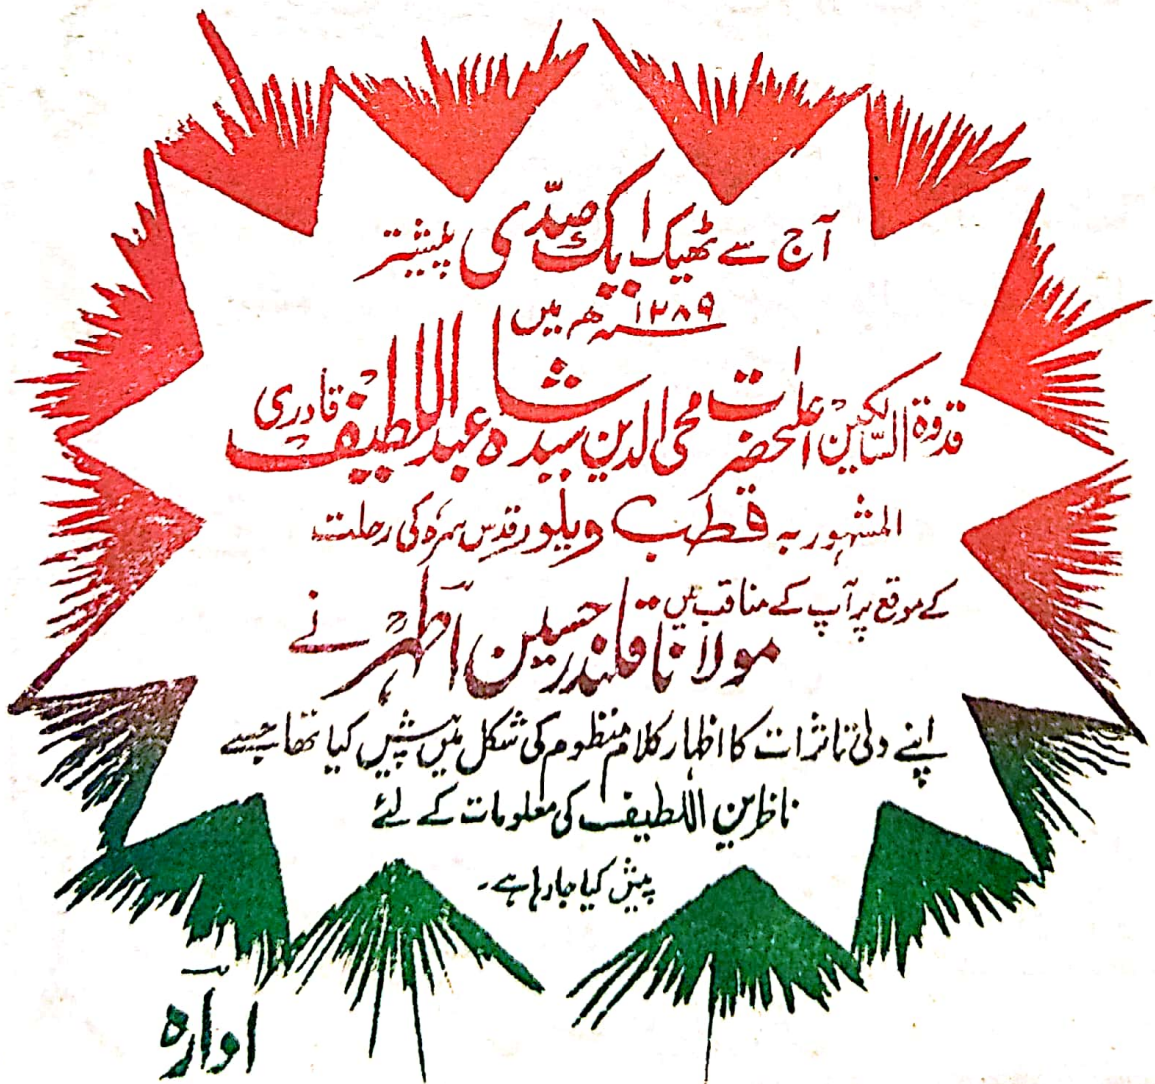 آج سے ٹھیک ایک صدّی پیشتر
۱۲۸۹ھ میں
قدوۃ السّالکین اعلٰحضرت محی الدین سید شاہ عبد اللطیف قادری
المشہور بہ قطب ویلور قدس سرہٗ کی رحلت
کے موقع پر آپ کے مناقب میں
مولانا قلندر حسین اطہر نے
اپنے دلی تاثرات کا اظہار کلام منظوم کی شکل میں پیش کیا تھا جسے
ناظرین اللطیف کی معلومات کے لئے
پیش کیا جا رہا ہے۔
ادارہ